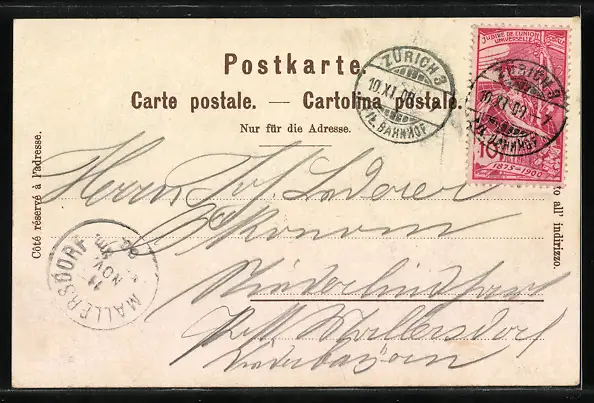 Postkarte.
Carte postale. — Cartolina postale.
Nur für die Adresse.
Côté réservé à l'adresse.
to all' indirizzo.
JUBILÉ DE L'UNION
POSTALE
UNIVERSELLE
10
1875-1900
ZÜRICH 3
10.XI.00
BAHNHOF
ZÜRICH 3
10.XI.00
BAHNHOF
MALLERSDORF
11
NOV
Herrn Jos. Loderer
Ökonom
Niederlindhart
Post Mallersdorf
Niederbayern